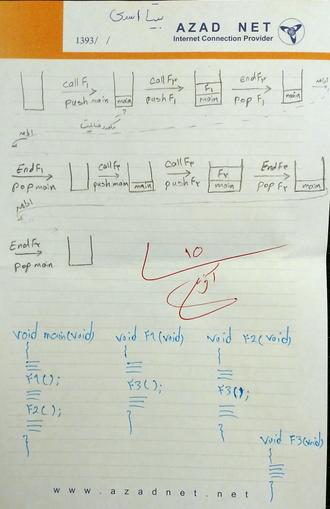 AZAD NET
Internet Connection Provider
1393/ /
call F1 call F۳ end F۳
push main main push F1 F1 main pop F1 main
End F1 call F۲ call F۳ End F۳
pop main push main main push F۲ F۲ main pop F۲ main
End F۲
pop main
۱۰
void main(void) void F1(void) void F2(void)
{ { {
F1(); F3(); F3();
F2();
} } }
void F3(void)
{
}
www.azadnet.net